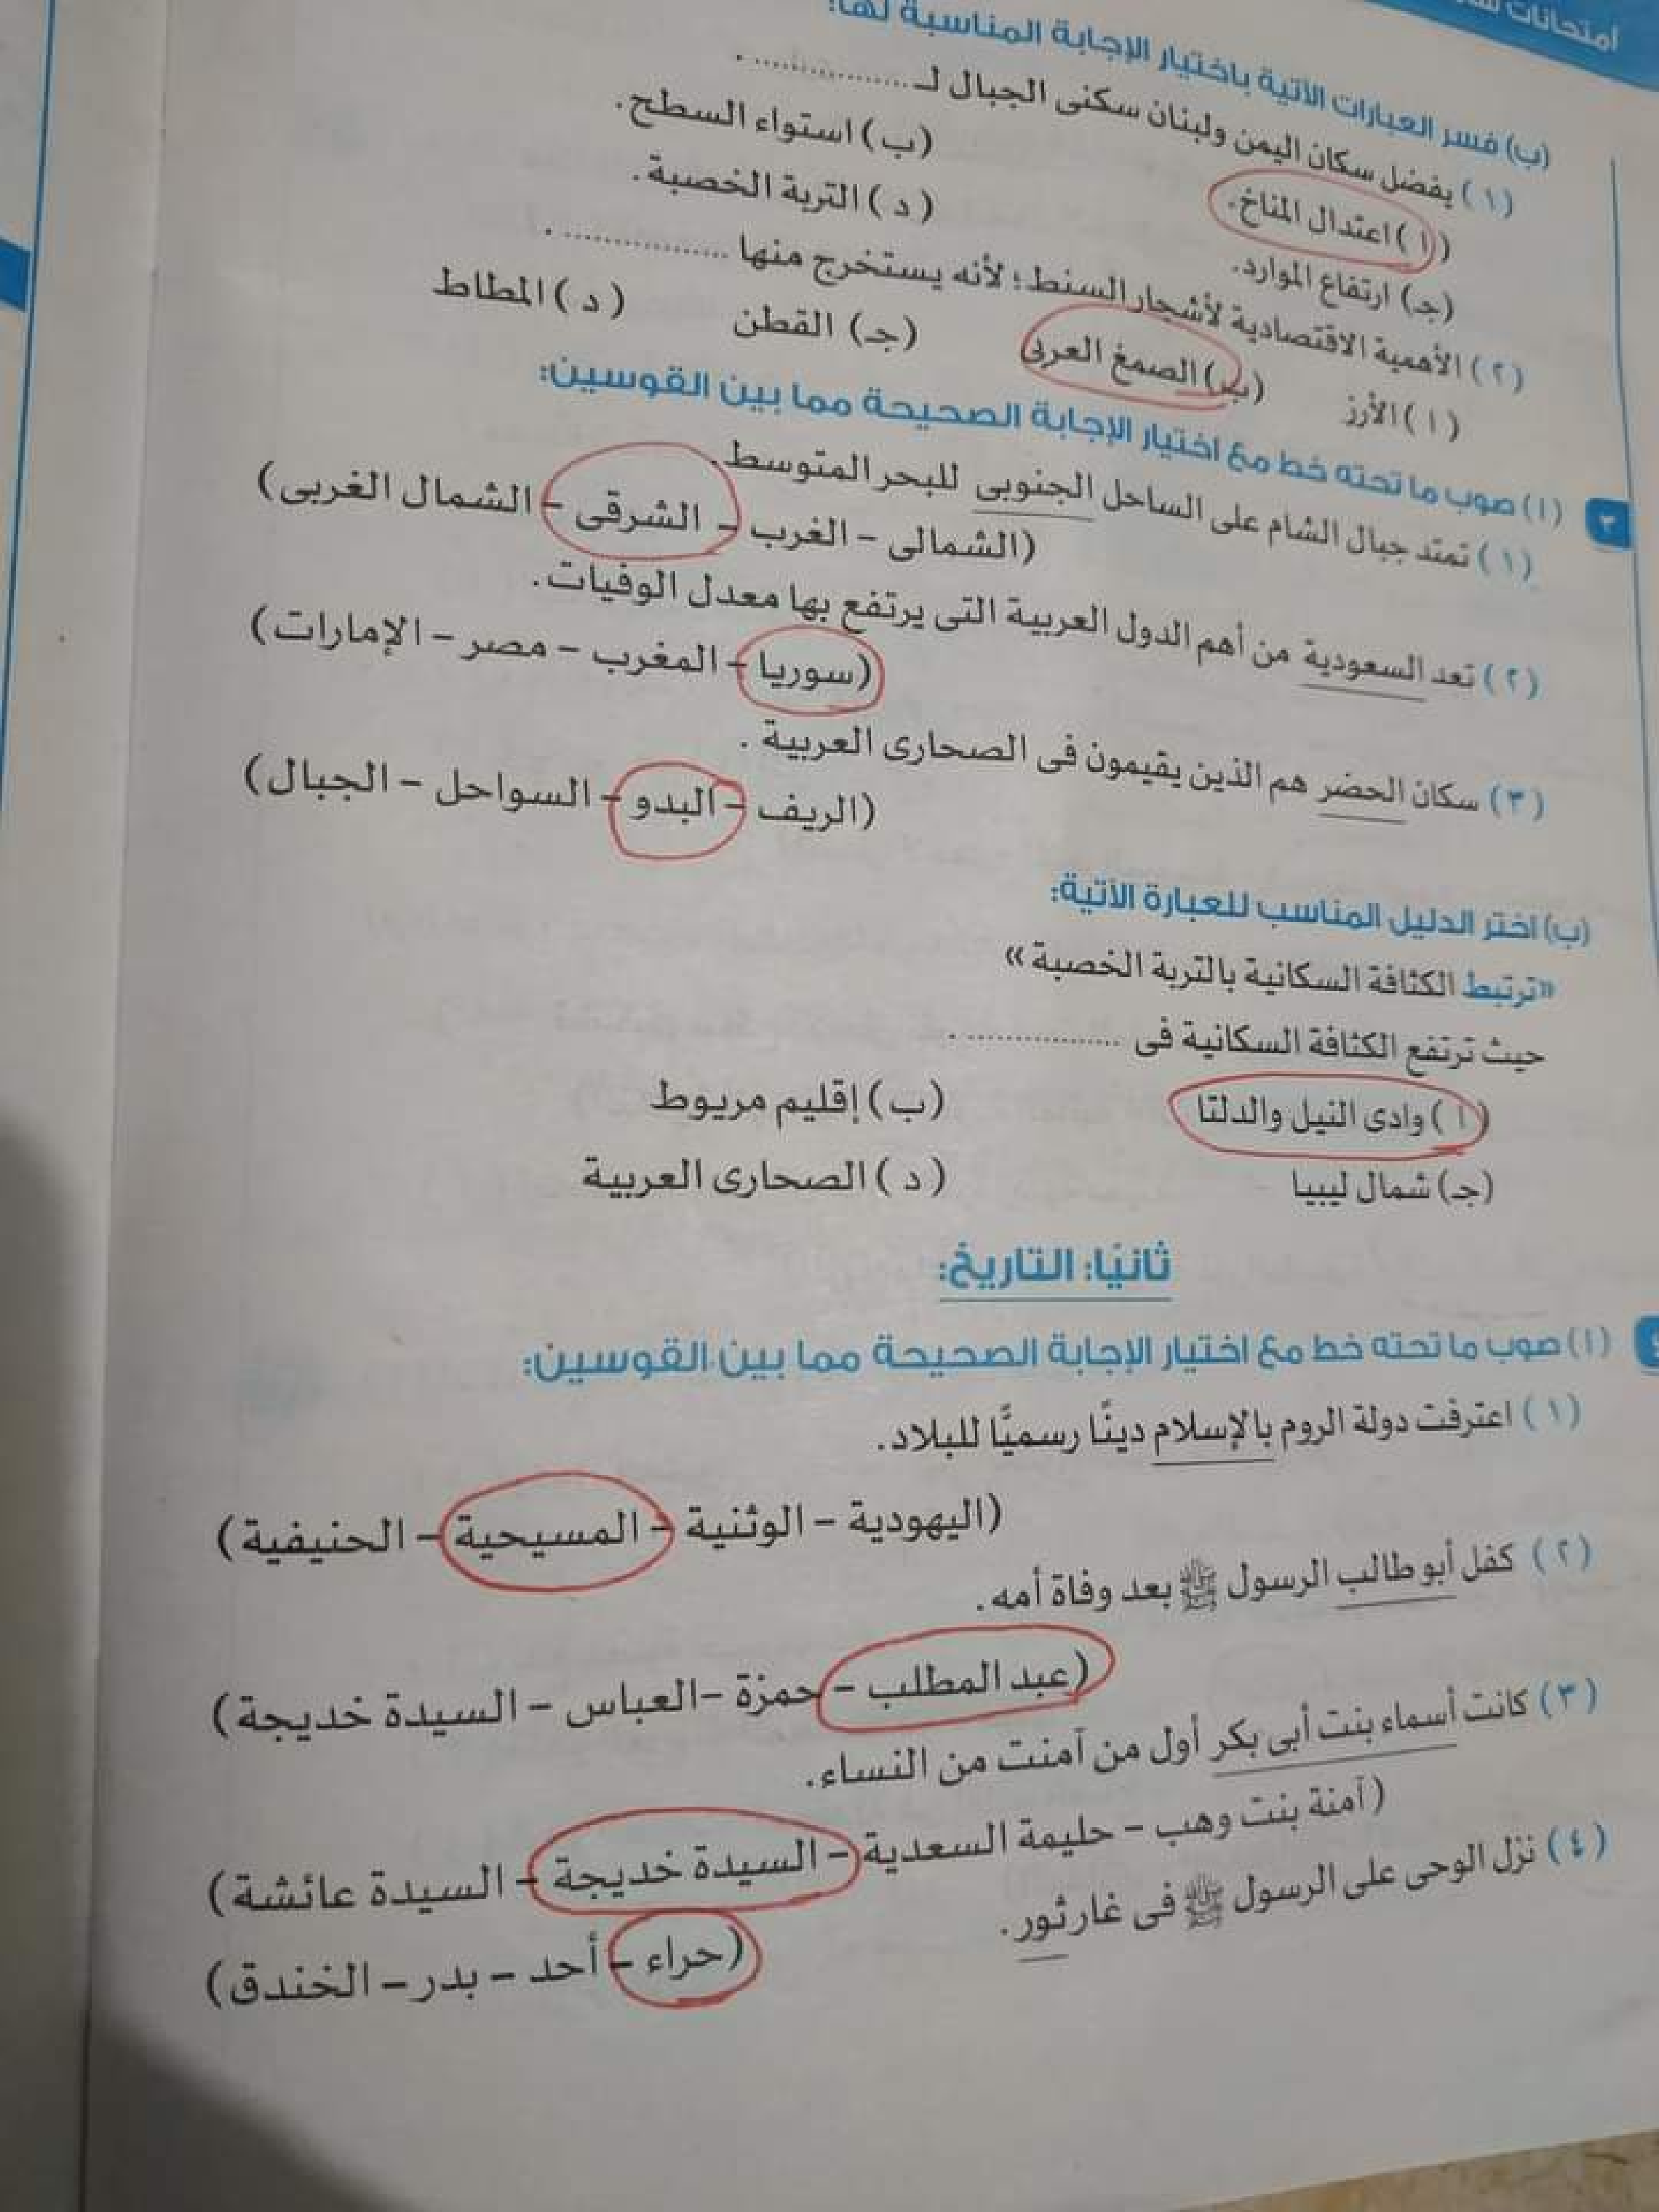 امتحانات
(ب) فسر العبارات الآتية باختيار الإجابة المناسبة لها:
(١) يفضل سكان اليمن ولبنان سكنى الجبال لـ .................. .
(ا) اعتدال المناخ. (ب) استواء السطح.
(جـ) ارتفاع الموارد. (د) التربة الخصبة.
(٢) الأهمية الاقتصادية لأشجار السنط؛ لأنه يستخرج منها .................. .
(ا) الأرز (ب) الصمغ العربى (جـ) القطن (د) المطاط
٣ (ا) صوب ما تحته خط مع اختيار الإجابة الصحيحة مما بين القوسين:
(١) تمتد جبال الشام على الساحل الجنوبى للبحر المتوسط.
(الشمالى - الغرب - الشرقى - الشمال الغربى)
(٢) تعد السعودية من أهم الدول العربية التى يرتفع بها معدل الوفيات.
(سوريا - المغرب - مصر - الإمارات)
(٣) سكان الحضر هم الذين يقيمون فى الصحارى العربية .
(الريف - البدو - السواحل - الجبال)
(ب) اختر الدليل المناسب للعبارة الآتية:
«ترتبط الكثافة السكانية بالتربة الخصبة»
حيث ترتفع الكثافة السكانية فى .................. .
(ا) وادى النيل والدلتا (ب) إقليم مريوط
(جـ) شمال ليبيا (د) الصحارى العربية
ثانيًا: التاريخ:
٤ (ا) صوب ما تحته خط مع اختيار الإجابة الصحيحة مما بين القوسين:
(١) اعترفت دولة الروم بالإسلام دينًا رسميًّا للبلاد.
(اليهودية - الوثنية - المسيحية - الحنيفية)
(٢) كفل أبو طالب الرسول ﷺ بعد وفاة أمه.
(عبد المطلب - حمزة - العباس - السيدة خديجة)
(٣) كانت أسماء بنت أبى بكر أول من آمنت من النساء.
(آمنة بنت وهب - حليمة السعدية - السيدة خديجة - السيدة عائشة)
(٤) نزل الوحى على الرسول ﷺ فى غار ثور.
(حراء - أحد - بدر - الخندق)